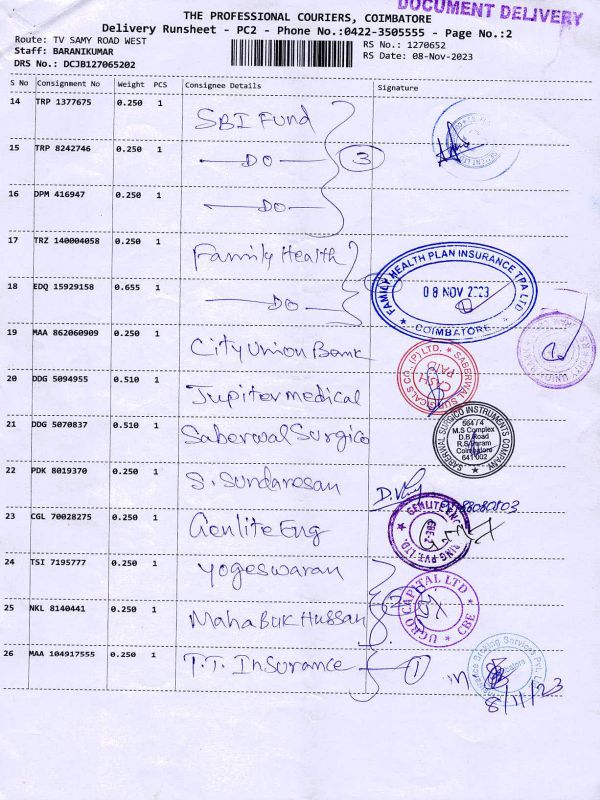 DOCUMENT DELIVERY
THE PROFESSIONAL COURIERS, COIMBATORE
Delivery Runsheet - PC2 - Phone No.:0422-3505555 - Page No.:2
Route: TV SAMY ROAD WEST
RS No.: 1270652
Staff: BARANIKUMAR
RS Date: 08-Nov-2023
DRS No.: DCJB127065202
S No Consignment No Weight PCS Consignee Details Signature
14 TRP 1377675 0.250 1 SBI Fund
15 TRP 8242746 0.250 1 DO 3
16 DPM 416947 0.250 1 DO
17 TRZ 140004058 0.250 1 Family Health
FAMILY HEALTH PLAN INSURANCE TPA LTD
08 NOV 2023
COIMBATORE
18 EDQ 15929158 0.655 1 DO
19 MAA 862060909 0.250 1 City Union Bank
20 DDG 5094955 0.510 1 Jupiter medical
SABERWAL SURGICALS CO., (P) LTD.
CASH
PAID
21 DDG 5070837 0.510 1 Saberwal Surgico
SABERWAL SURGICO INSTRUMENTS COMPANY
664 / 4
M.S Complex
D.B.Road
R.S.Puram
Coimbatore
641 002
22 PDK 8019370 0.250 1 S. Sundaresan
23 CGL 70028275 0.250 1 Genlite Eng
24 TSI 7195777 0.250 1 Yogeswaran
25 NKL 8140441 0.250 1 Maha Buk Hussan
UGRO CAPITAL LTD
CBE
26 MAA 104917555 0.250 1 T.T. Insurance 1
8/11/23